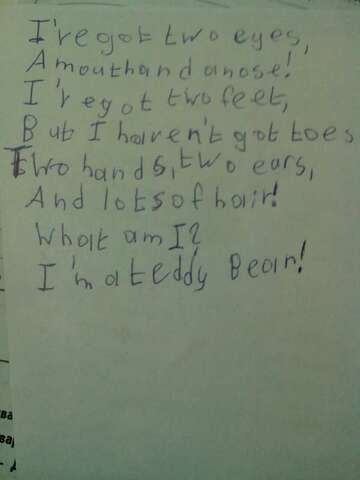 I've got two eyes,
A mouth and a nose!
I've got two feet,
But I haven't got toes
Two hands, two ears,
And lots of hair!
What am I?
I'm a teddy Bear!